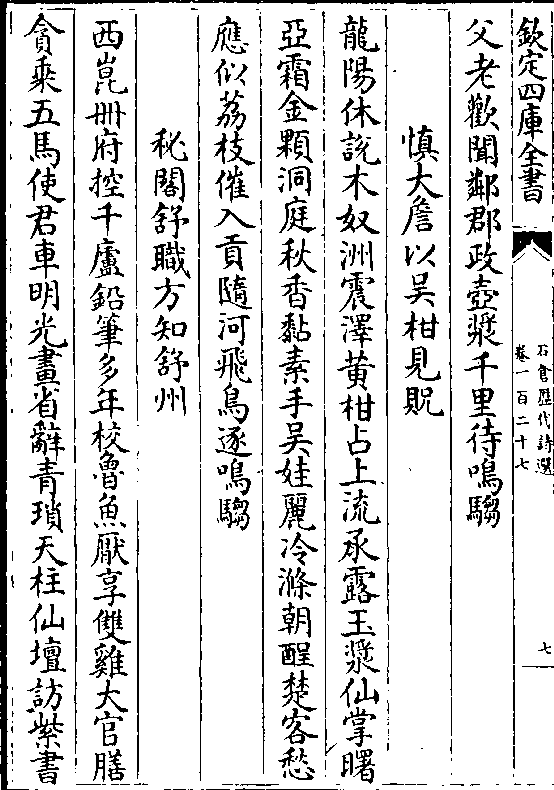 欽定四庫全書
石倉歷代詩選
卷一百二十七
七
父老歡聞鄰郡政壺漿千里待鳴騶
慎大詹以吳柑見貺
龍陽休說木奴洲震澤黃柑占上流承露玉漿仙掌曙
亞霜金顆洞庭秋香黏素手吳娃麗冷滌朝酲楚客愁
應似荔枝催入貢隨河飛鳥逐鳴騶
秘閣舒職方知舒州
西崑冊府控千廬鉛筆多年校魯魚厭享雙雞大官膳
貪乘五馬使君車明光畫省辭青瑣天柱仙壇訪紫書